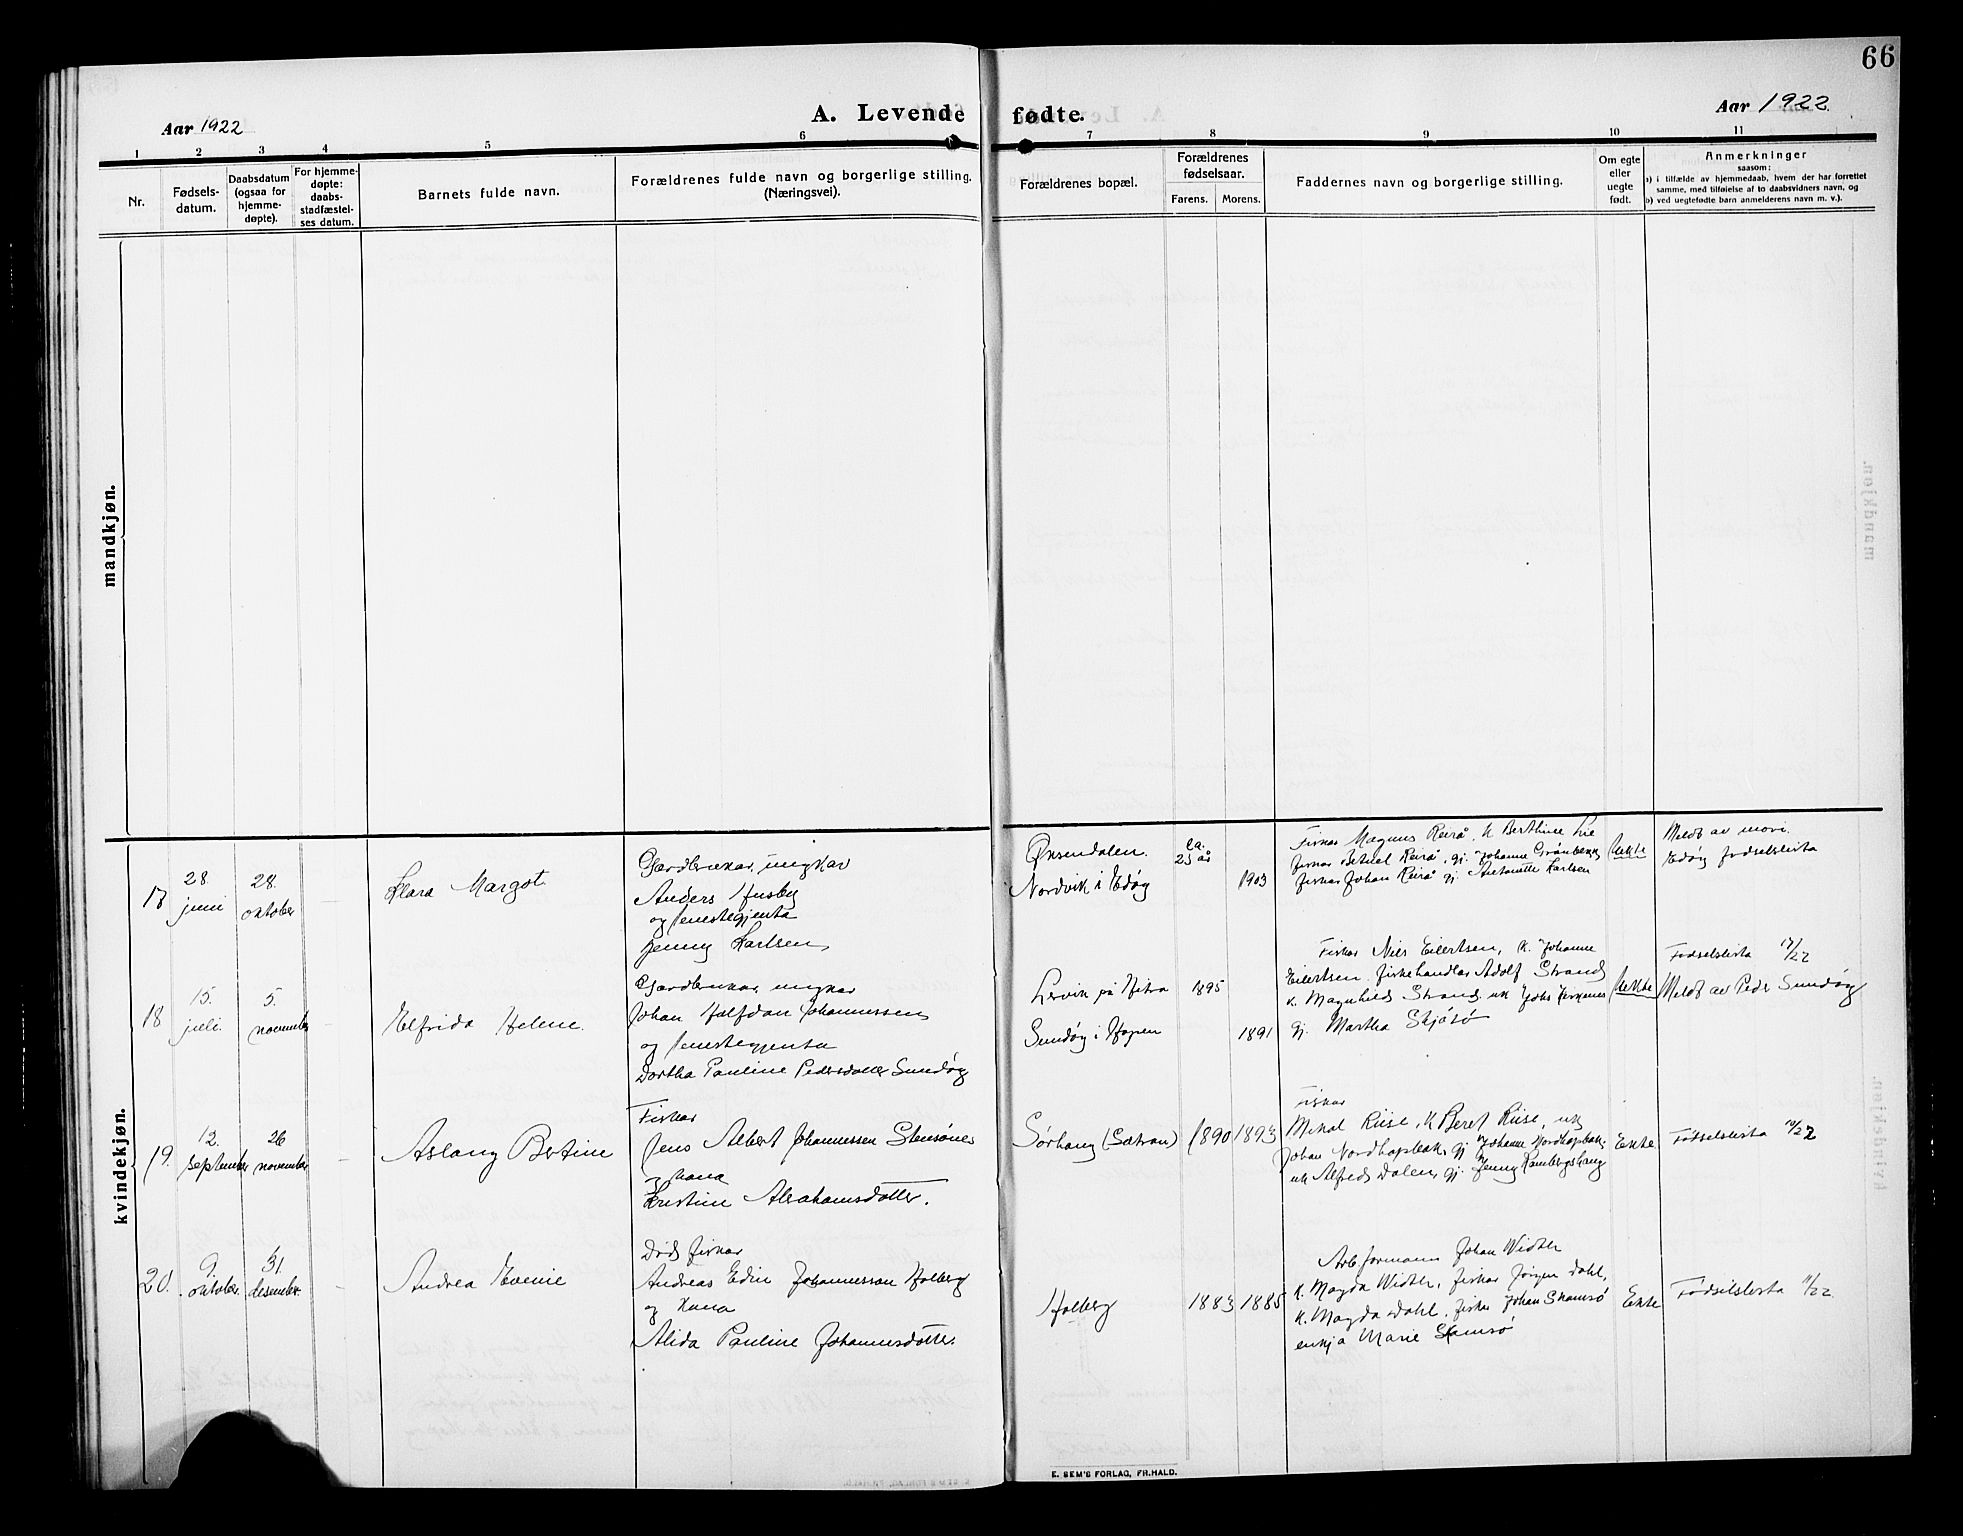 66
Aar 1922
A. Levende fødte.
Aar 1922.
1 2 3 4 5 6 7 8 9 10 11
Nr.
Fødsels-
datum.
Daabsdatum
(ogsaa for
hjemme-
døpte).
For hjemme-
døpte:
daabs-
stadfæstel-
ses datum.
Barnets fulde navn.
Forældrenes fulde navn og borgerlige stilling.
(Næringsvei).
Forældrenes bopæl.
Forældrenes
fødselsaar.
Farens. Morens.
Faddernes navn og borgerlige stilling.
Om egte
eller
uegte
født.
Anmerkninger
saasom:
a) i tilfælde av hjemmedaab, hvem der har forrettet
samme, med tilføielse af to daabsvidners navn, og
b) ved uegtefødte barn anmelderens navn m. v.).
mandkjøn.
kvindekjøn.
17
28.
juni
28.
oktober
Klara Margot
Gardbrukar, ungkar
Anders Husby
og tenestegjenta
Jenny Karlsen
Øksendalen.
Nordvik i Edøy
ca.
25 år
1903
Fiskar Magnus Reirå, k Berthine Lie
fiskar Betuel Reirå, gj. Johanna Grønbekk,
fiskar Johan Reirå gj Antonette Karlsen
Uekte
Meldt av mori.
Edøy fødselslista
18
15.
juli.
5.
november
Elfrida Helene.
Gardbrukar, ungkar
Johan Halfdan Johannessen
og tenestegjenta
Dortha Pauline Pedersdatter Sundøy
Lervik på Hitra
Sundøy i Hopen
1895
1891
Fiskar Nils Eilertsen, k. Johanna
Eilertsen, fiskehandlar Adolf Strand
k. Magnhild Strand, uk
gj. Martha Skjøsø
Uekte
Fødselslista 17/22
Meldt av Peder Sundøy
19.
12.
september
26
november
Aslaug Bertine
Fiskar
Jens Albert Johannessen Stensønes
og kona
Kristine Abrahamsdotter.
Sørhaug (Sætran)
1890 1893
Fiskar
Mikal Riise, k Beret Riise, uk
Johan Nordhopbakk, gj Johanna Nordhopbakk,
uk Alfred Dalen, gj. Jenny Rambergshaug
Ekte
Fødselslista
20.
9.
oktober
31.
desember.
Andrea Evenie
Død fiskar
Andreas Edin Johannessen Holberg
og kona
Alida Pauline Johannesdotter.
Holberg
1883 1885
Arb.formann Johan Width
k. Magda Width, fiskar Jørgen Dahl,
k. Magda Dahl, fiskar Johan Skamsø
enkja Marie Skamsø
Ekte
Fødselslista 11/22
E. SEM'S FORLAG, FR.HALD.